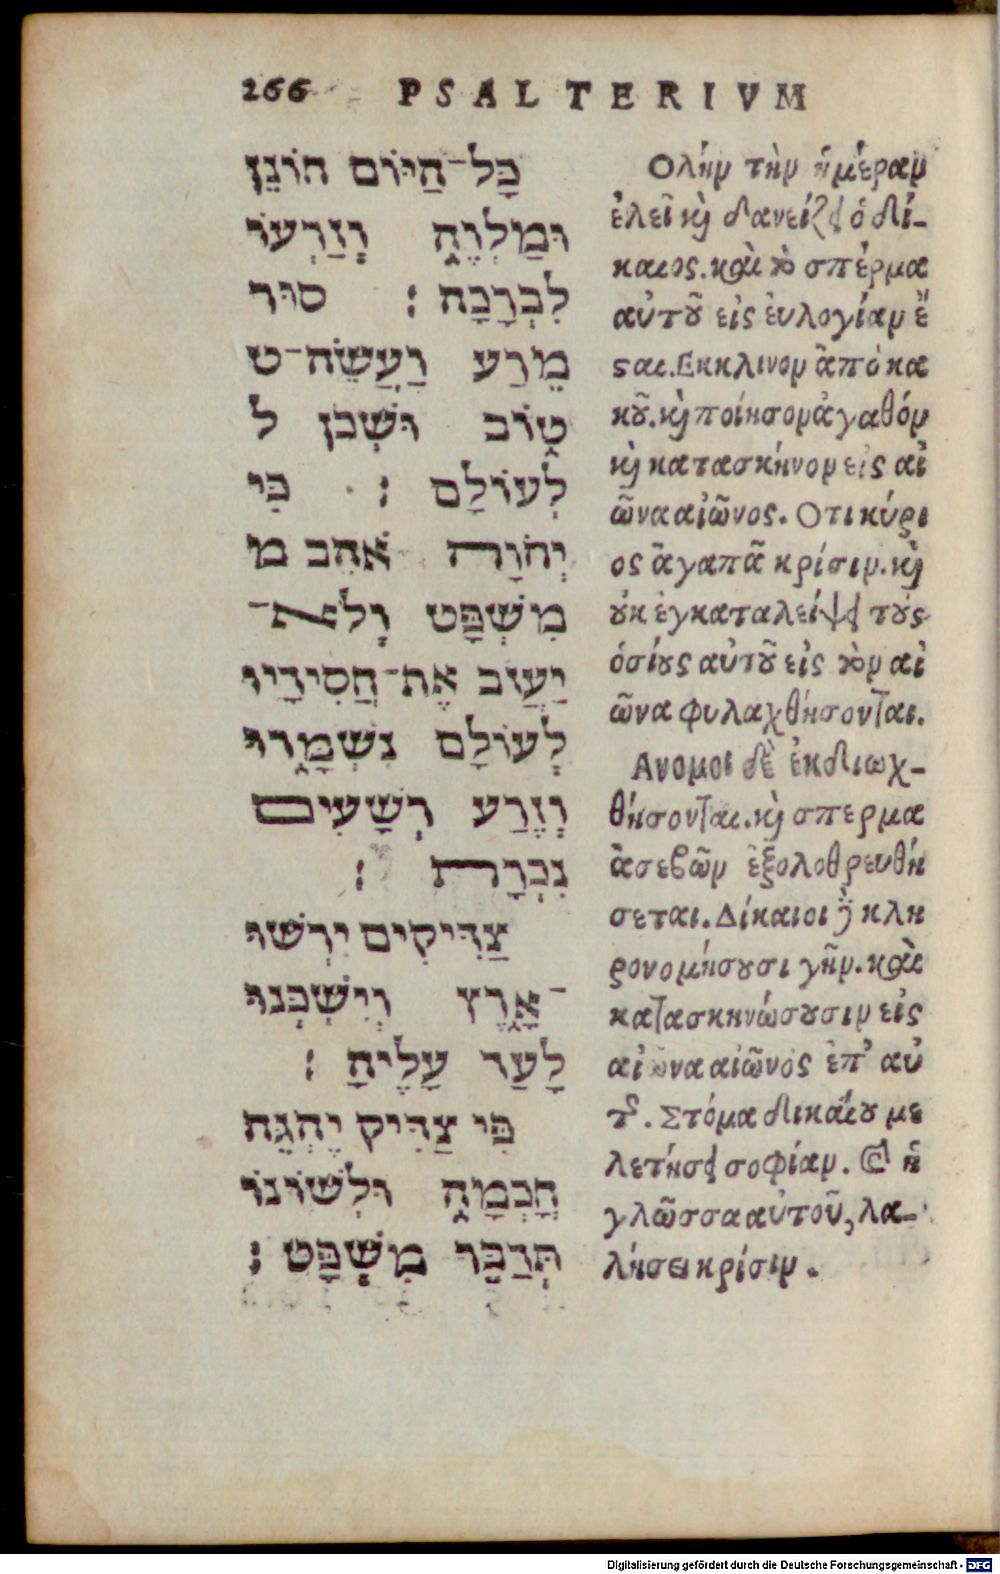 266 PSALTERIVM
כָּל־הַיּוֹם חוֹנֵן
וּמַלְוֶה וְזַרְעוֹ
לִבְרָכָה : סוּר
מֵרַע וַעֲשֵׂה־ט
טוֹב וּשְׁכֹן ל
לְעוֹלָם : כִּי
יְהֹוָה אֹהֵב מ
מִשְׁפָּט וְלֹא־
יַעֲזֹב אֶת־חֲסִידָיו
לְעוֹלָם נִשְׁמָרוּ
וְזֶרַע רְשָׁעִים
נִכְרָת :
צַדִּיקִים יִרְשׁוּ
־אָרֶץ וְיִשְׁכְּנוּ
לָעַד עָלֶיהָ :
פִּי צַדִּיק יֶהְגֶּה
חָכְמָה וּלְשׁוֹנוֹ
תְּדַבֵּר מִשְׁפָּט :
Ολὴν τὴν ἡμέραν
ἐλεῖ καὶ δανείζει ὁ δί-
καιος. καὶ τὸ σπέρμα
αὐτοῦ εἰς ἐυλογίαν ἔ
ςαι. Εκκλινον ἀπὸ κα
κοῦ. καὶ ποίησον ἀγαθόν
καὶ κατασκήνον εἰς αἰ
ῶνα αἰῶνος. Οτι κύρι
ος ἀγαπᾶ κρίσιν. καὶ
οὐκ ἐγκαταλείψει τοὺς
ὁσίους αὐτοῦ εἰς τὸν αἰ
ῶνα φυλαχθήσονται.
Ανομοι δὲ ἐκδιωχ-
θήσονται. καὶ σπερμα
ἀσεβῶν ἐξολοθρευθή
σεται. Δίκαιοι δὲ κλη
ρονομήσουσι γῆν. καὶ
κατασκηνώσουσιν εἰς
αἰῶνα αἰῶνος ἐπ' αὐ
τῆς. Στόμα δικαίου με
λετήσει σοφίαν. Καὶ ἡ
γλῶσσα αὐτοῦ, λα-
λήσει κρίσιν.
Digitalisierung gefördert durch die Deutsche Forschungsgemeinschaft - DFG